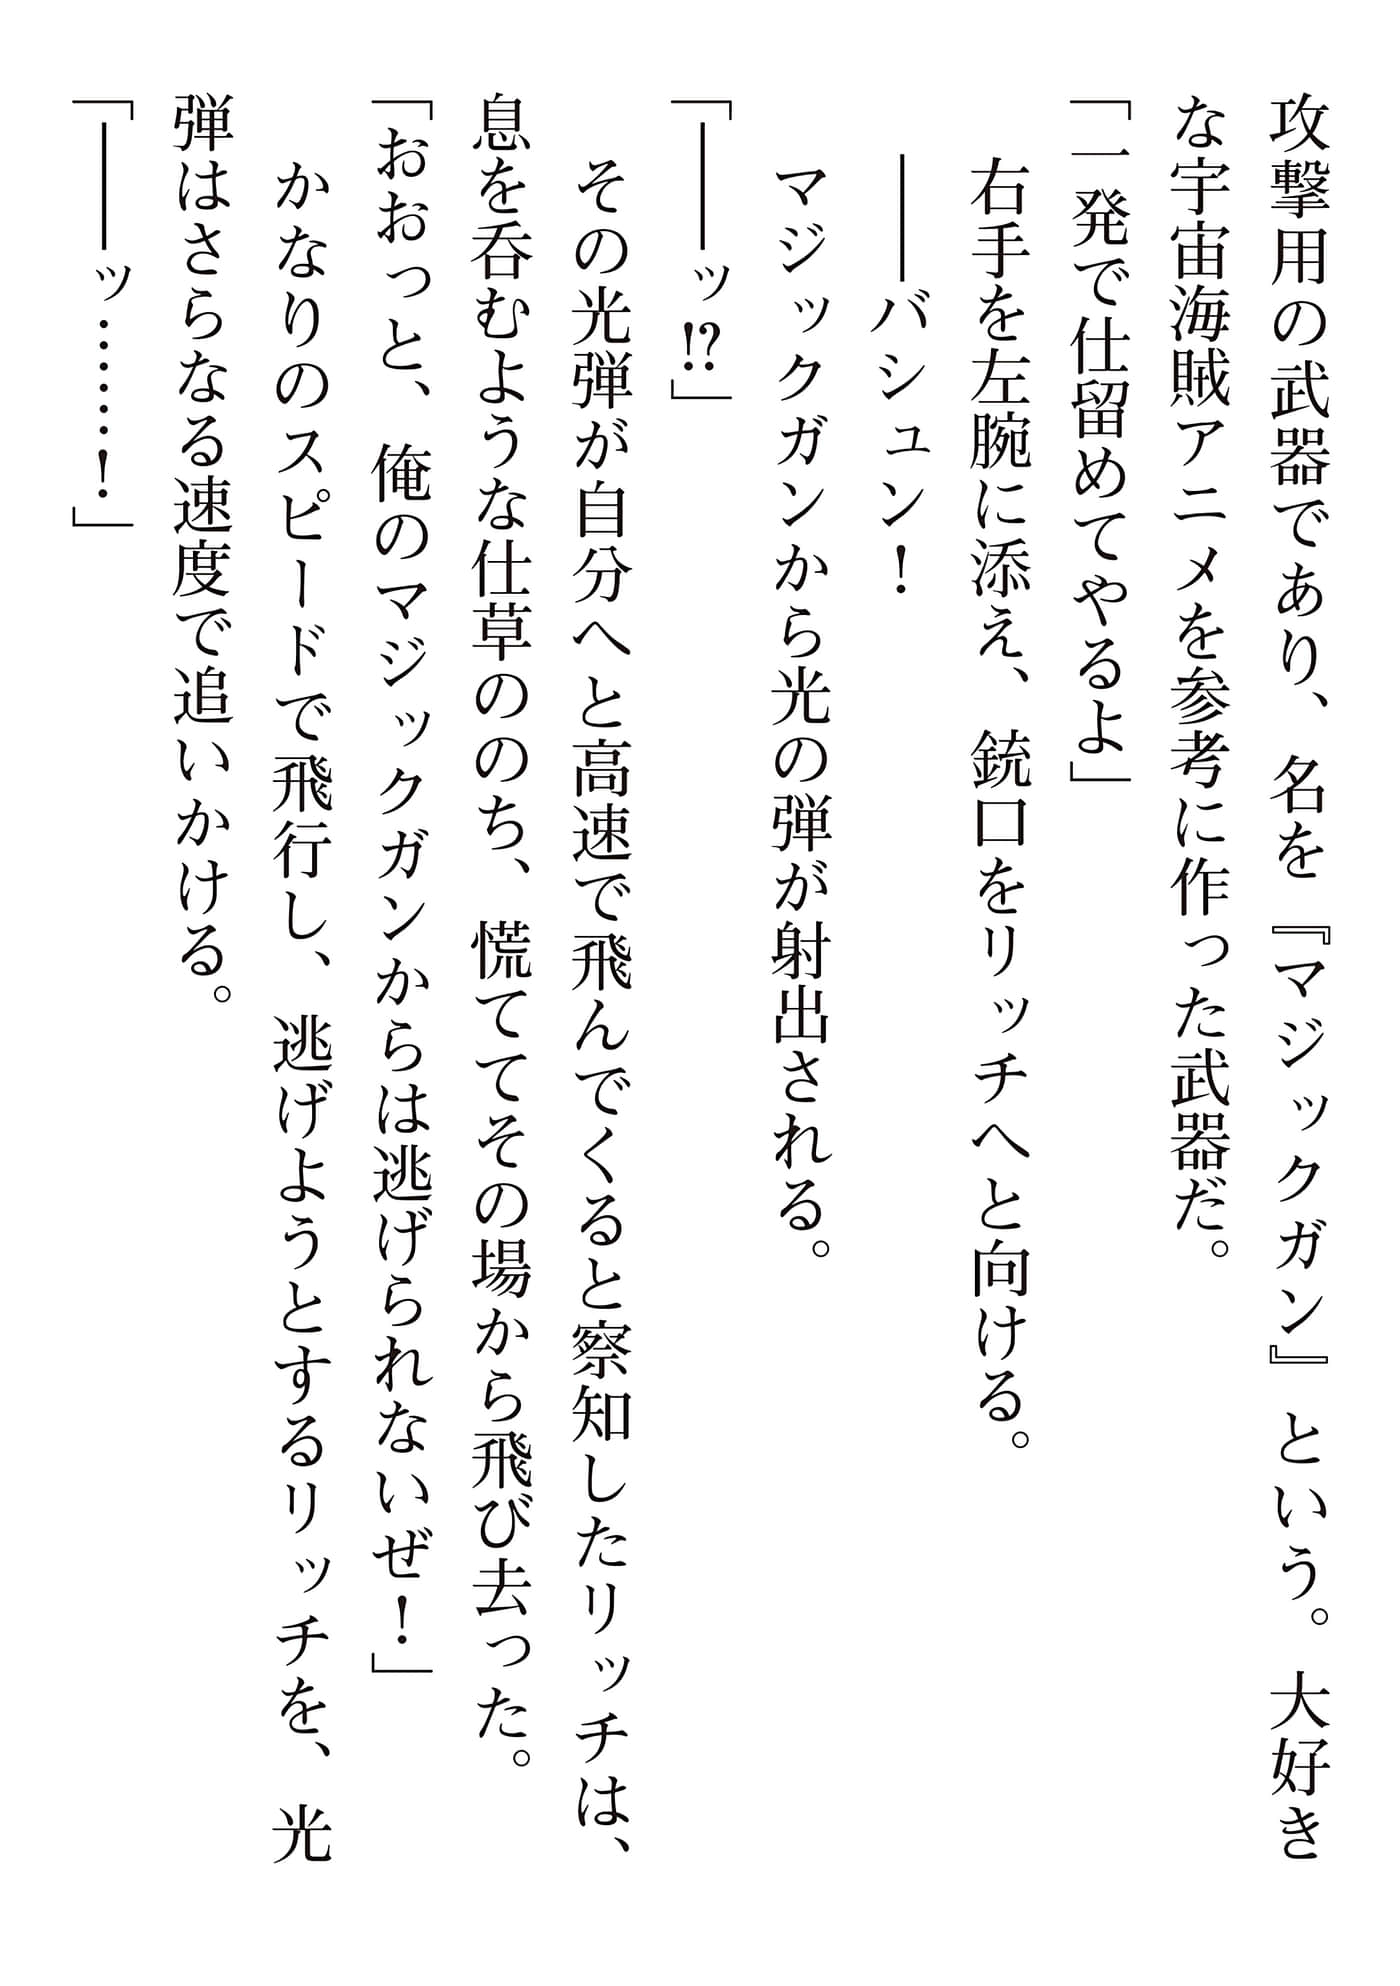 攻撃用の武器であり、名を『マジックガン』という。大好き
な宇宙海賊アニメを参考に作った武器だ。
「一発で仕留めてやるよ」
　右手を左腕に添え、銃口をリッチへと向ける。
　――バシュン！
　マジックガンから光の弾が射出される。
「――ッ!?」
　その光弾が自分へと高速で飛んでくると察知したリッチは、
息を呑むような仕草ののち、慌ててその場から飛び去った。
「おおっと、俺のマジックガンからは逃げられないぜ！」
　かなりのスピードで飛行し、逃げようとするリッチを、光
弾はさらなる速度で追いかける。
「――ッ……！」